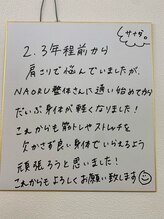 サナダ
2、3年程前から
肩こりで悩んでいましたが、
NAORU整体さんに通い始めてから
だいぶ身体が軽くなりました!
これからも筋トレやストレッチを
欠かさず良い身体でいられるよう
頑張ろうと思いました!
これからもよろしくお願い致します